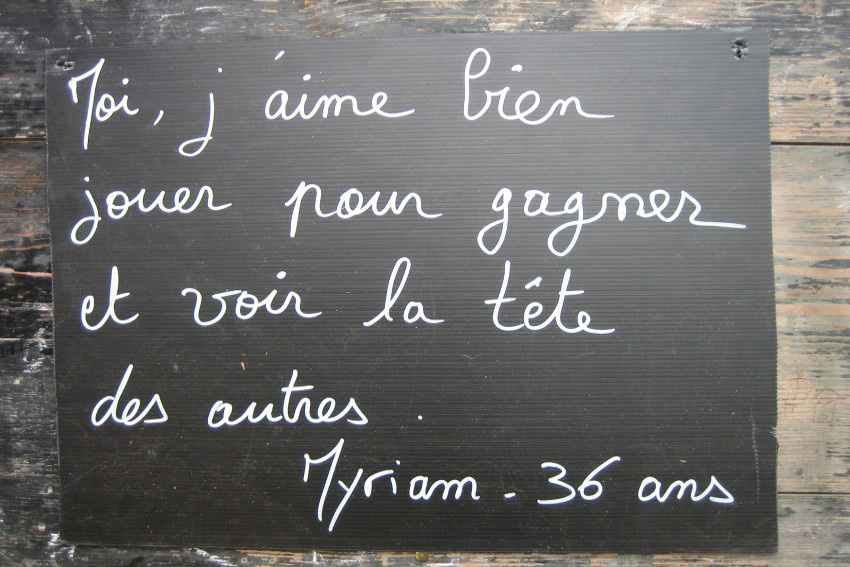 Moi, j'aime bien
jouer pour gagner
et voir la tête
des autres.
Myriam - 36 ans